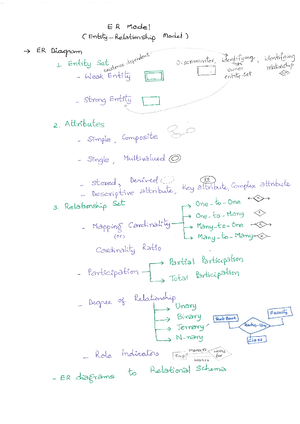 ER Model
(Entity-Relationship Model)
→ ER Diagram
1. Entity Set
existence dependent
Discriminator, identifying, identifying
owner relationship
entity set
- Weak Entity
- Strong Entity
2. Attributes
- Simple, Composite
- Single, Multivalued
- Stored, Derived
- Descriptive attribute, Key attribute, Complex attribute
3. Relationship Set
- Mapping Cardinality
(or)
Cardinality Ratio
→ One-to-One
→ One-to-Many
→ Many-to-One
→ Many-to-Many
- Participation
→ Partial Participation
→ Total Participation
- Degree of Relationship
→ Unary
→ Binary
→ Ternary
→ N-nary
Faculty
Class
- Role Indicators
Emp
works
for
- ER diagrams to Relational Schema